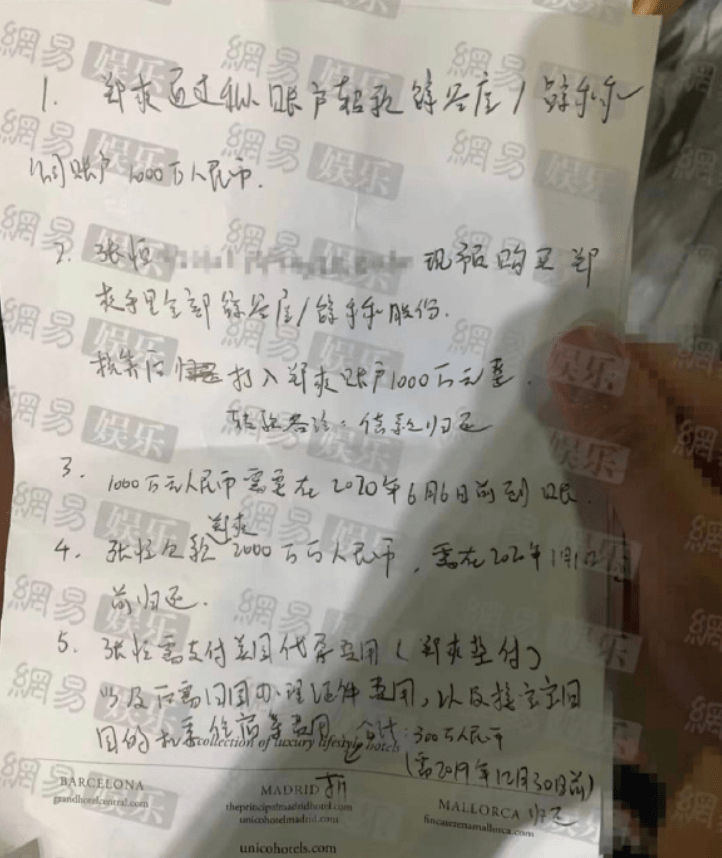 1. 郑爽通过私账户转款
公司账户1000万人民币.
2. 张恒 现预购买郑
爽手里全部 股份.
核算后 打入郑爽账户1000万元整.
转款备注:借款归还
3. 1000万元人民币需要在2020年6月6日前到账.
郑爽
4. 张恒欠款2000万人民币,需在202 年1月1
前归还.
5. 张恒需支付美国代孕费用(郑爽垫付)
以及后需回国办理证件费用,以及接宝宝回
国的机票住宿等费用 合计:300万人民币
collection of luxury lifestyle hotels
(需2019年12月30日前)
归还
BARCELONA
grandhotelcentral.com
MADRID
theprincipalmadridhotel.com
unicohotelmadrid.com
MALLORCA
fincaserenamallorca.com
unicohotels.com
網易娱乐